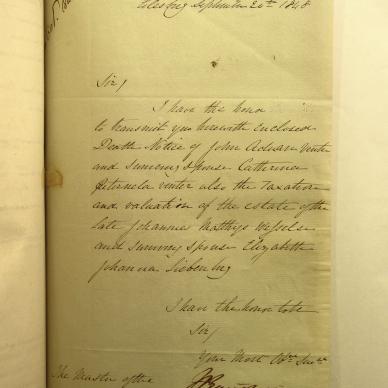 Colesberg September 20th 1848
Sir/
I have the hono
to transmit you herewith enclosed
Death Notice of John Adrian Venter
and surviving Spouse Catherina
Petronela Venter also the Taxation
and valuation of the estate of the
late Johannes Matthys Wessels
and surviving spouse Elizabeth
Johanna Siebenberg
I have the honor to be
Sir/
Your Most Obt Servt
The Master of the